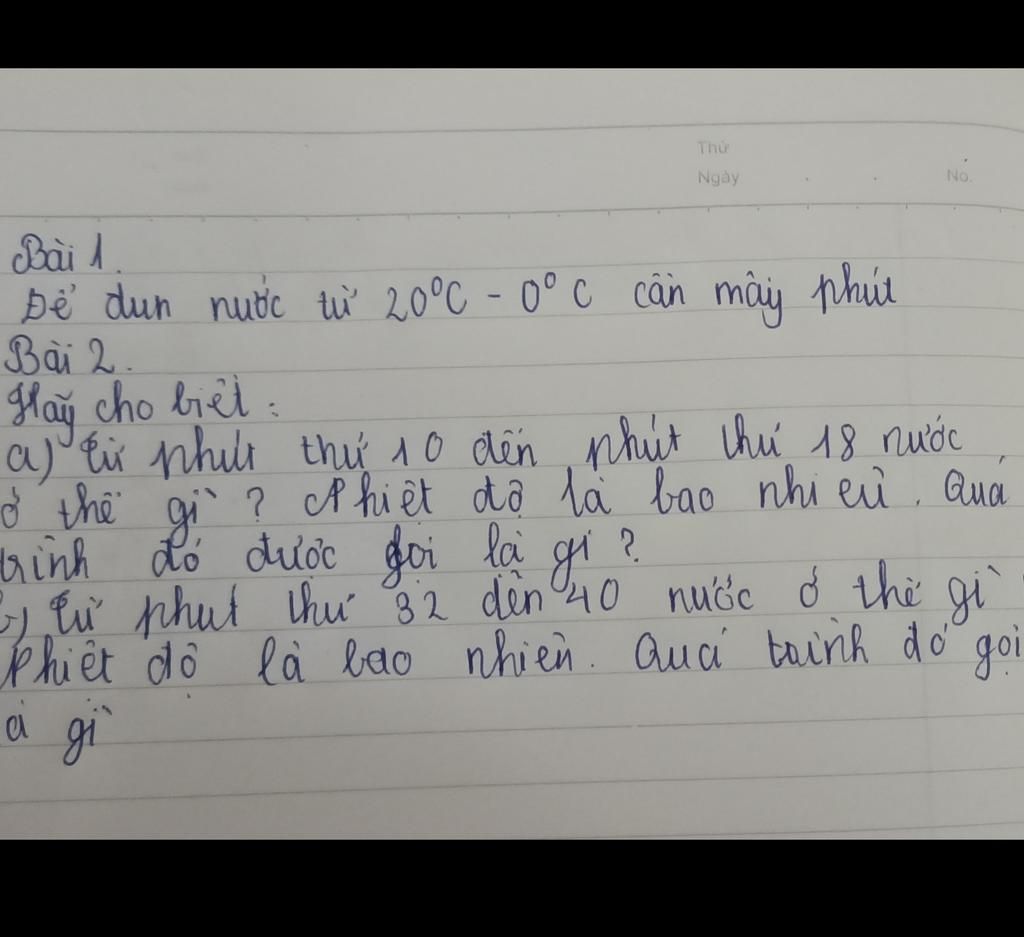 Thứ
Ngày . . No.
Bài 1.
Để dun nước từ 20°C - 0°C cần mấy phút
Bài 2.
Hãy cho biết :
a) từ phút thứ 10 đến phút thứ 18 nước
ở thể gì ? Nhiệt độ là bao nhiêu. Quá
trình đó được gọi là gì ?
từ phut thứ 32 đến 40 nước ở thể gì
Nhiệt độ là bao nhiên. Quá trình đó gọi
là gì